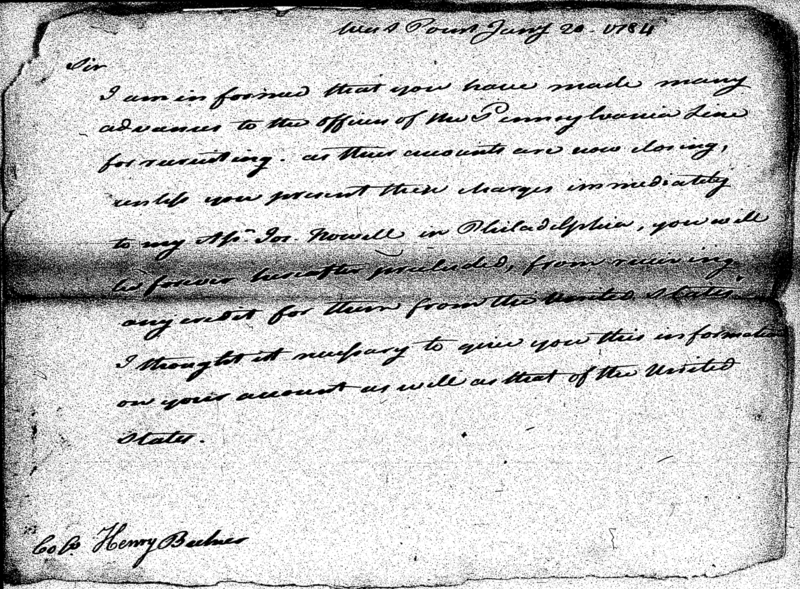 West Point Jany 20 1784
Sir
I am informed that you have made many
advances to the officers of the Pennsylvania Line
for recruiting. as their accounts are now closing,
unless you present these charges immediately
to my Asst. Jos. Howell in Philadelphia, you will
be forever hereafter precluded, from receiving
any credit for them from the United States.
I thought it necessary to give you this information
on your account as well as that of the United
States.
Colo Henry